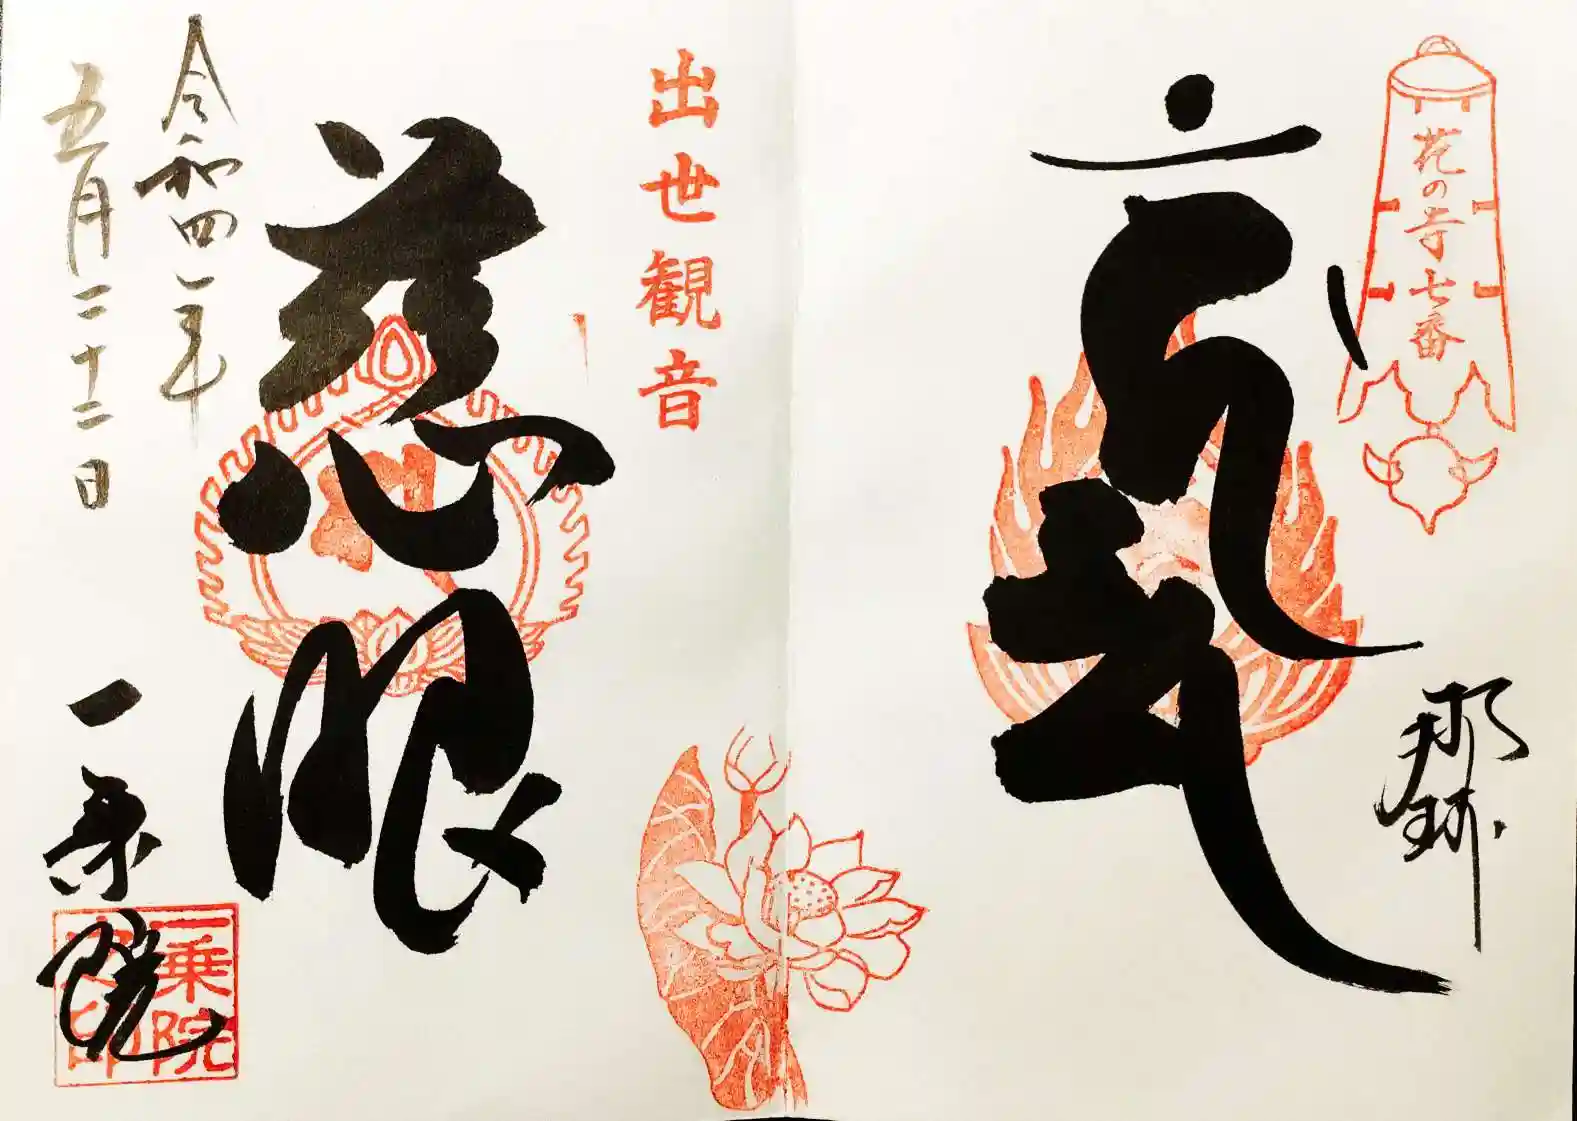 花の寺七番
出世観音
慈眼
令和四年
五月二十二日
一乗院
一乗院